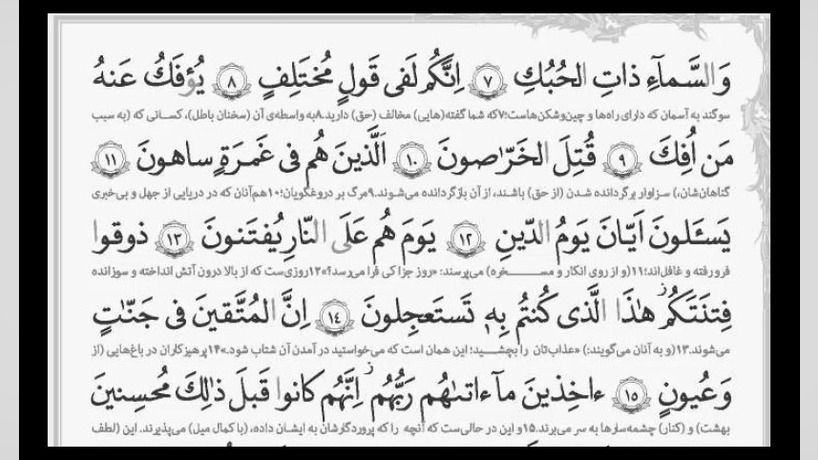 وَالسَّمآءِ ذاتِ الحُبُكِ ٧ اِنَّكُم لَفى قَولٍ مُختَلِفٍ ٨ يُؤفَكُ عَنهُ
سوگند به آسمان که دارای راه‌ها و چین‌وشکن‌هاست؛۷که شما گفته(هایی) مخالف (حق) دارید.۸به واسطه‌ی آن (سخنان باطل)، کسانی که (به سبب
مَن اُفِكَ ٩ قُتِلَ الخَرّاصونَ ١٠ اَلَّذينَ هُم فى غَمرَةٍ ساهونَ ١١
گناهان‌شان،) سزاوار برگردانده شدن (از حق) باشند، از آن بازگردانده می‌شوند.۹مرگ بر دروغگویان!۱۰هم‌آنان که در دریایی از جهل و بی‌خبری
يَسـَٔلونَ اَيّانَ يَومُ الدّينِ ١٢ يَومَ هُم عَلَى النّارِ يُفتَنونَ ١٣ ذوقوا
فرورفته و غافل‌اند؛۱۱(و از روی انکار و مسخره) می‌پرسند: «روز جزا کی فرا می‌رسد؟»۱۲روزی‌ست که از بالا درون آتش انداخته و سوزانده
فِتنَتَكُم هٰذَا الَّذى كُنتُم بِهٖ تَستَعجِلونَ ١٤ اِنَّ المُتَّقينَ فى جَنّٰتٍ
می‌شوند.۱۳(و به آنان می‌گویند:) «عذاب‌تان را بچشید؛ این همان است که می‌خواستید در آمدن آن شتاب شود.»۱۴پرهیزکاران در باغ‌هایی (از
وَعُيونٍ ١٥ ءاخِذينَ مآ ءاتىٰهُم رَبُّهُم اِنَّهُم كانوا قَبلَ ذٰلِكَ مُحسِنينَ
بهشت) و (کنار) چشمه‌سارها به سر می‌برند.۱۵و این در حالی‌ست که آنچه را که پروردگارشان به ایشان داده، (با کمال میل) می‌پذیرند. این (لطف